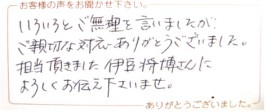 お客様の声をお聞かせ下さい。
いろいろとご無理を言いましたが、
ご親切な対応ありがとうございました。
担当頂きました伊豆将博さんに
よろしくお伝え下さいませ。
ありがとうございました。